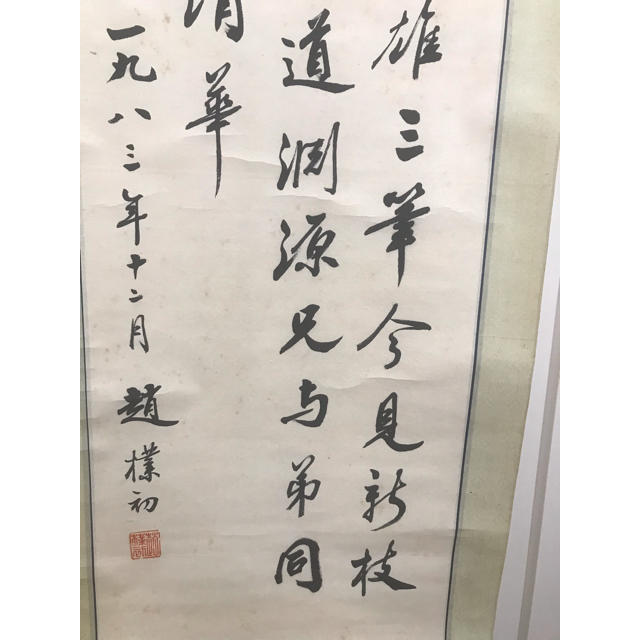 雄三筆今見新枝
道渊源兄与弟同
清華
一九八三年十二月 趙樸初